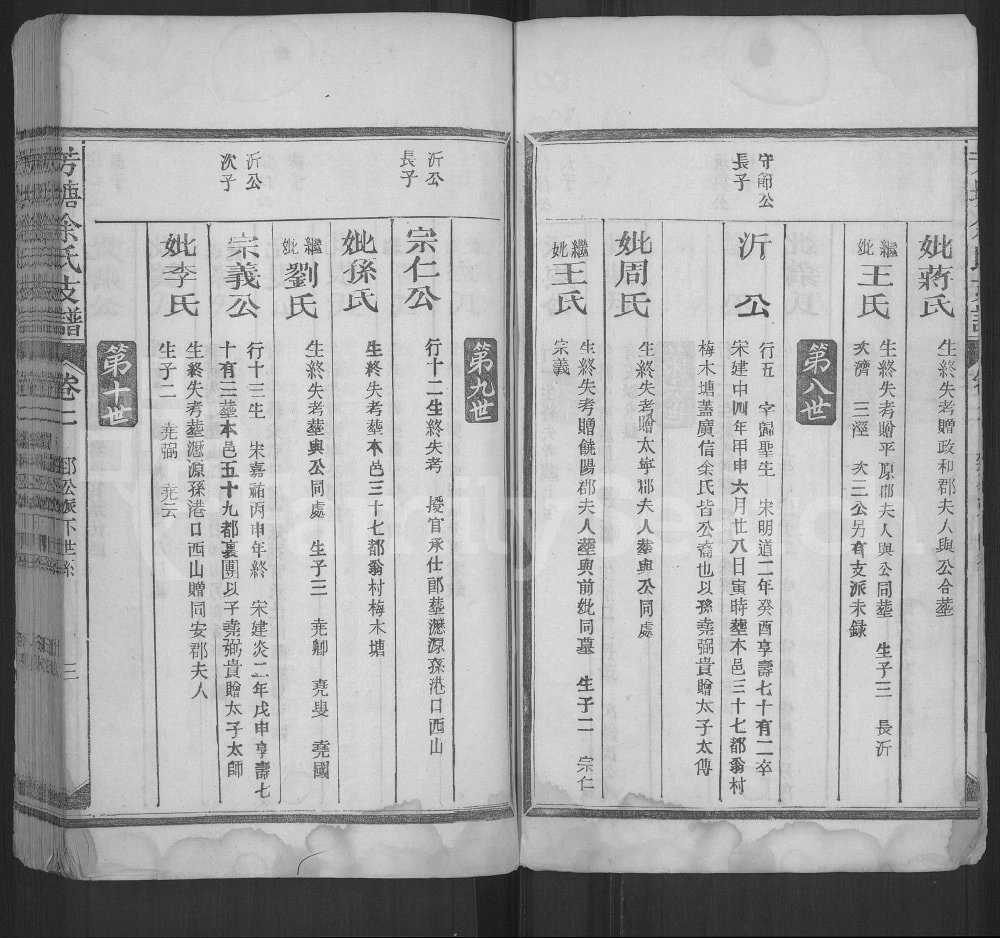 妣蔣氏
生終失考贈政和郡夫人與公合塟
繼妣王氏
生終失考贈平原郡夫人與公同塟 生子三 長沂
次濟 三涇 次三公另有支派未録
第八世
守節公
長子
沂公
行五 字歸聖生 宋明道二年癸酉享壽七十有二卒
宋建中四年甲申六月廿八日寅時塟本邑三十七都翁村
梅木塘蓋廣信余氏皆公裔也以孫堯弼貴贈太子太傅
妣周氏
生終失考贈太寧郡夫人塟與公同處
繼妣王氏
生終失考贈饒陽郡夫人塟與前妣同墓 生子二 宗仁
宗義
第九世
沂公
長子
宗仁公
行十二生終失考 授官承仕郎塟瀝源孫港口西山
妣孫氏
生終失考塟本邑三十七都翁村梅木塘
繼妣劉氏
生終失考塟與公同處 生子三 堯卿 堯叟 堯國
沂公
次子
宗義公
行十三生 宋嘉祐丙申年終 宋建炎二年戊申享壽七
十有三塟本邑五十九都裏團以子堯弼貴贈太子太師
妣李氏
生終失考塟瀝源孫港口西山贈同安郡夫人
生子二 堯弼 堯云
第十世
芳塘余氏支譜 卷二 公派下世系 三